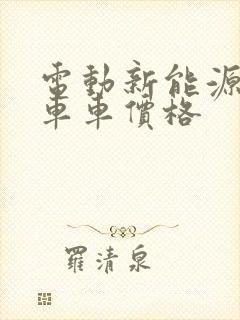 電動新能源
車車價格
羅清泉